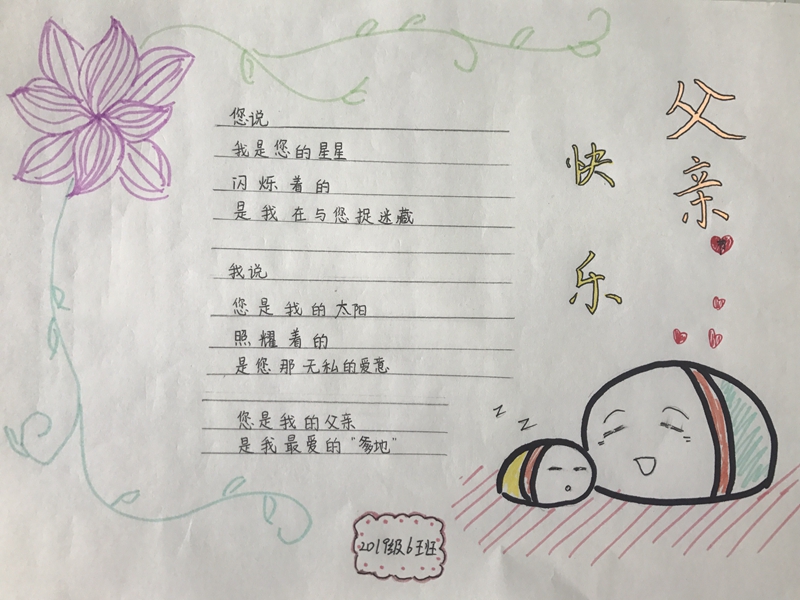 父亲
快乐
您说
我是您的星星
闪烁着的
是我在与您捉迷藏
我说
您是我的太阳
照耀着的
是您那无私的爱意
您是我的父亲
是我最爱的“爹地”
z z
2019级6班